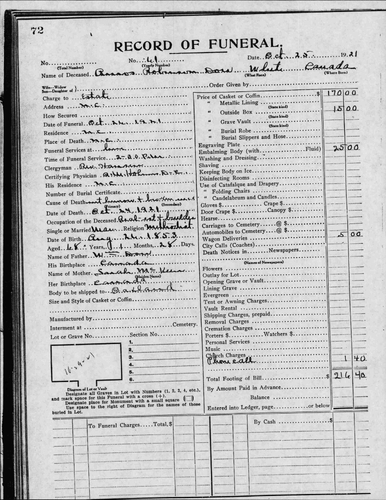 72
RECORD OF FUNERAL.
No. No. 61 Date Oct. 25 1921
(Total Number) (Yearly Number)
Name of Deceased Robinson Dore White Canada
(What Race) (Where Born)
Wife—Widow
Son—Daughter of Order Given by
Charge to Estate
Address M.C.
How Secured
Date of Funeral Oct. 26, 1921
Residence M.C.
Place of Death M.C.
Funeral Services at home
Time of Funeral Service 2:30 P.M.
Clergyman Rev.
Certifying Physician
His Residence M.C.
Number of Burial Certificate
Cause of Death
Date of Death Oct. 24, 1921
Occupation of the Deceased
Single or Married Mar. Religion Methodist
Date of Birth Aug. 26, 1853
Aged 68 Years, 1 Months, 28 Days.
Name of Father Wm Dore
His Birthplace Canada
Name of Mother Sarah
Her Birthplace Canada
Body to be shipped to Oakland
Size and Style of Casket or Coffin
Manufactured by
Interment at Cemetery.
Lot or Grave No. Section No.
1.
2.
3.
4.
5.
6.
7.
Diagram of Lot or Vault
Designate all Graves in Lot with Numbers (1, 2, 3, 4, etc.),
and mark space for this Funeral with a cross (+).
Designate place for Monument with a small square
Use space to the right of Diagram for the names of those
buried in Lot.
Price of Casket or Coffin 170 00
" Metallic Lining
" Outside Box 15 00
" Grave Vault
" Burial Robe
" Burial Slippers and Hose
Engraving Plate
Embalming Body (with Fluid) 25 00
Washing and Dressing
Shaving
Keeping Body on Ice
Disinfecting Rooms
Use of Catafalque and Drapery
" Folding Chairs
" Candelabrum and Candles
Gloves $ Crape $
Door Crape $ Canopy $
Hearse
Carriages to Cemetery @ $
Automobiles to Cemetery @ $
Wagon Deliveries 5 00
City Calls (Coaches)
Death Notices in Newspapers
Flowers
Outlay for Lot
Opening Grave or Vault
Lining Grave
Evergreen
Tent or Awning Charges
Vault Rental
Shipping Charges, prepaid
Removal Charges
Cremation Charges
Porters $ Watchers $
Personal Services
Music
Church Charges
Phone call 1 40
Total Footing of Bill 216 40
By Amount Paid in Advance
Balance
Entered into Ledger, page or below.
To Funeral Charges Total $ By Cash $